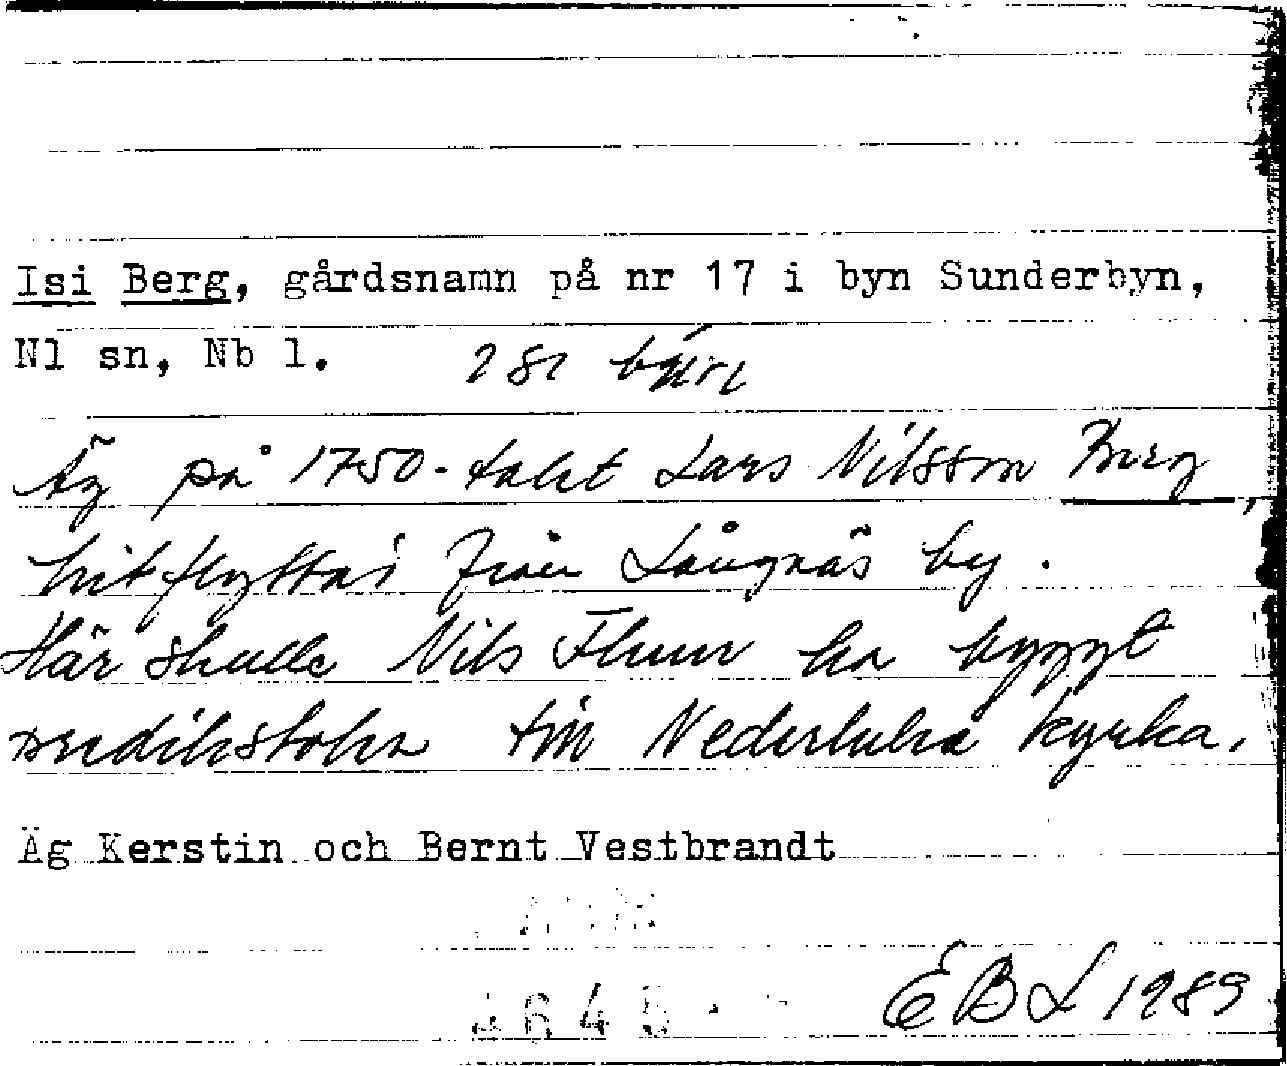 Isi Berg, gårdsnamn på nr 17 i byn Sunderbyn,
Nl sn, Nb l.
Äg på 1750-talet Lars Nilsson Berg,
hitflyttad från Långnäs by.
Här skulle Nils Fluur ha byggt
predikstolen till Nederluleå kyrka.
Äg Kerstin och Bernt Vestbrandt
EBL 1989